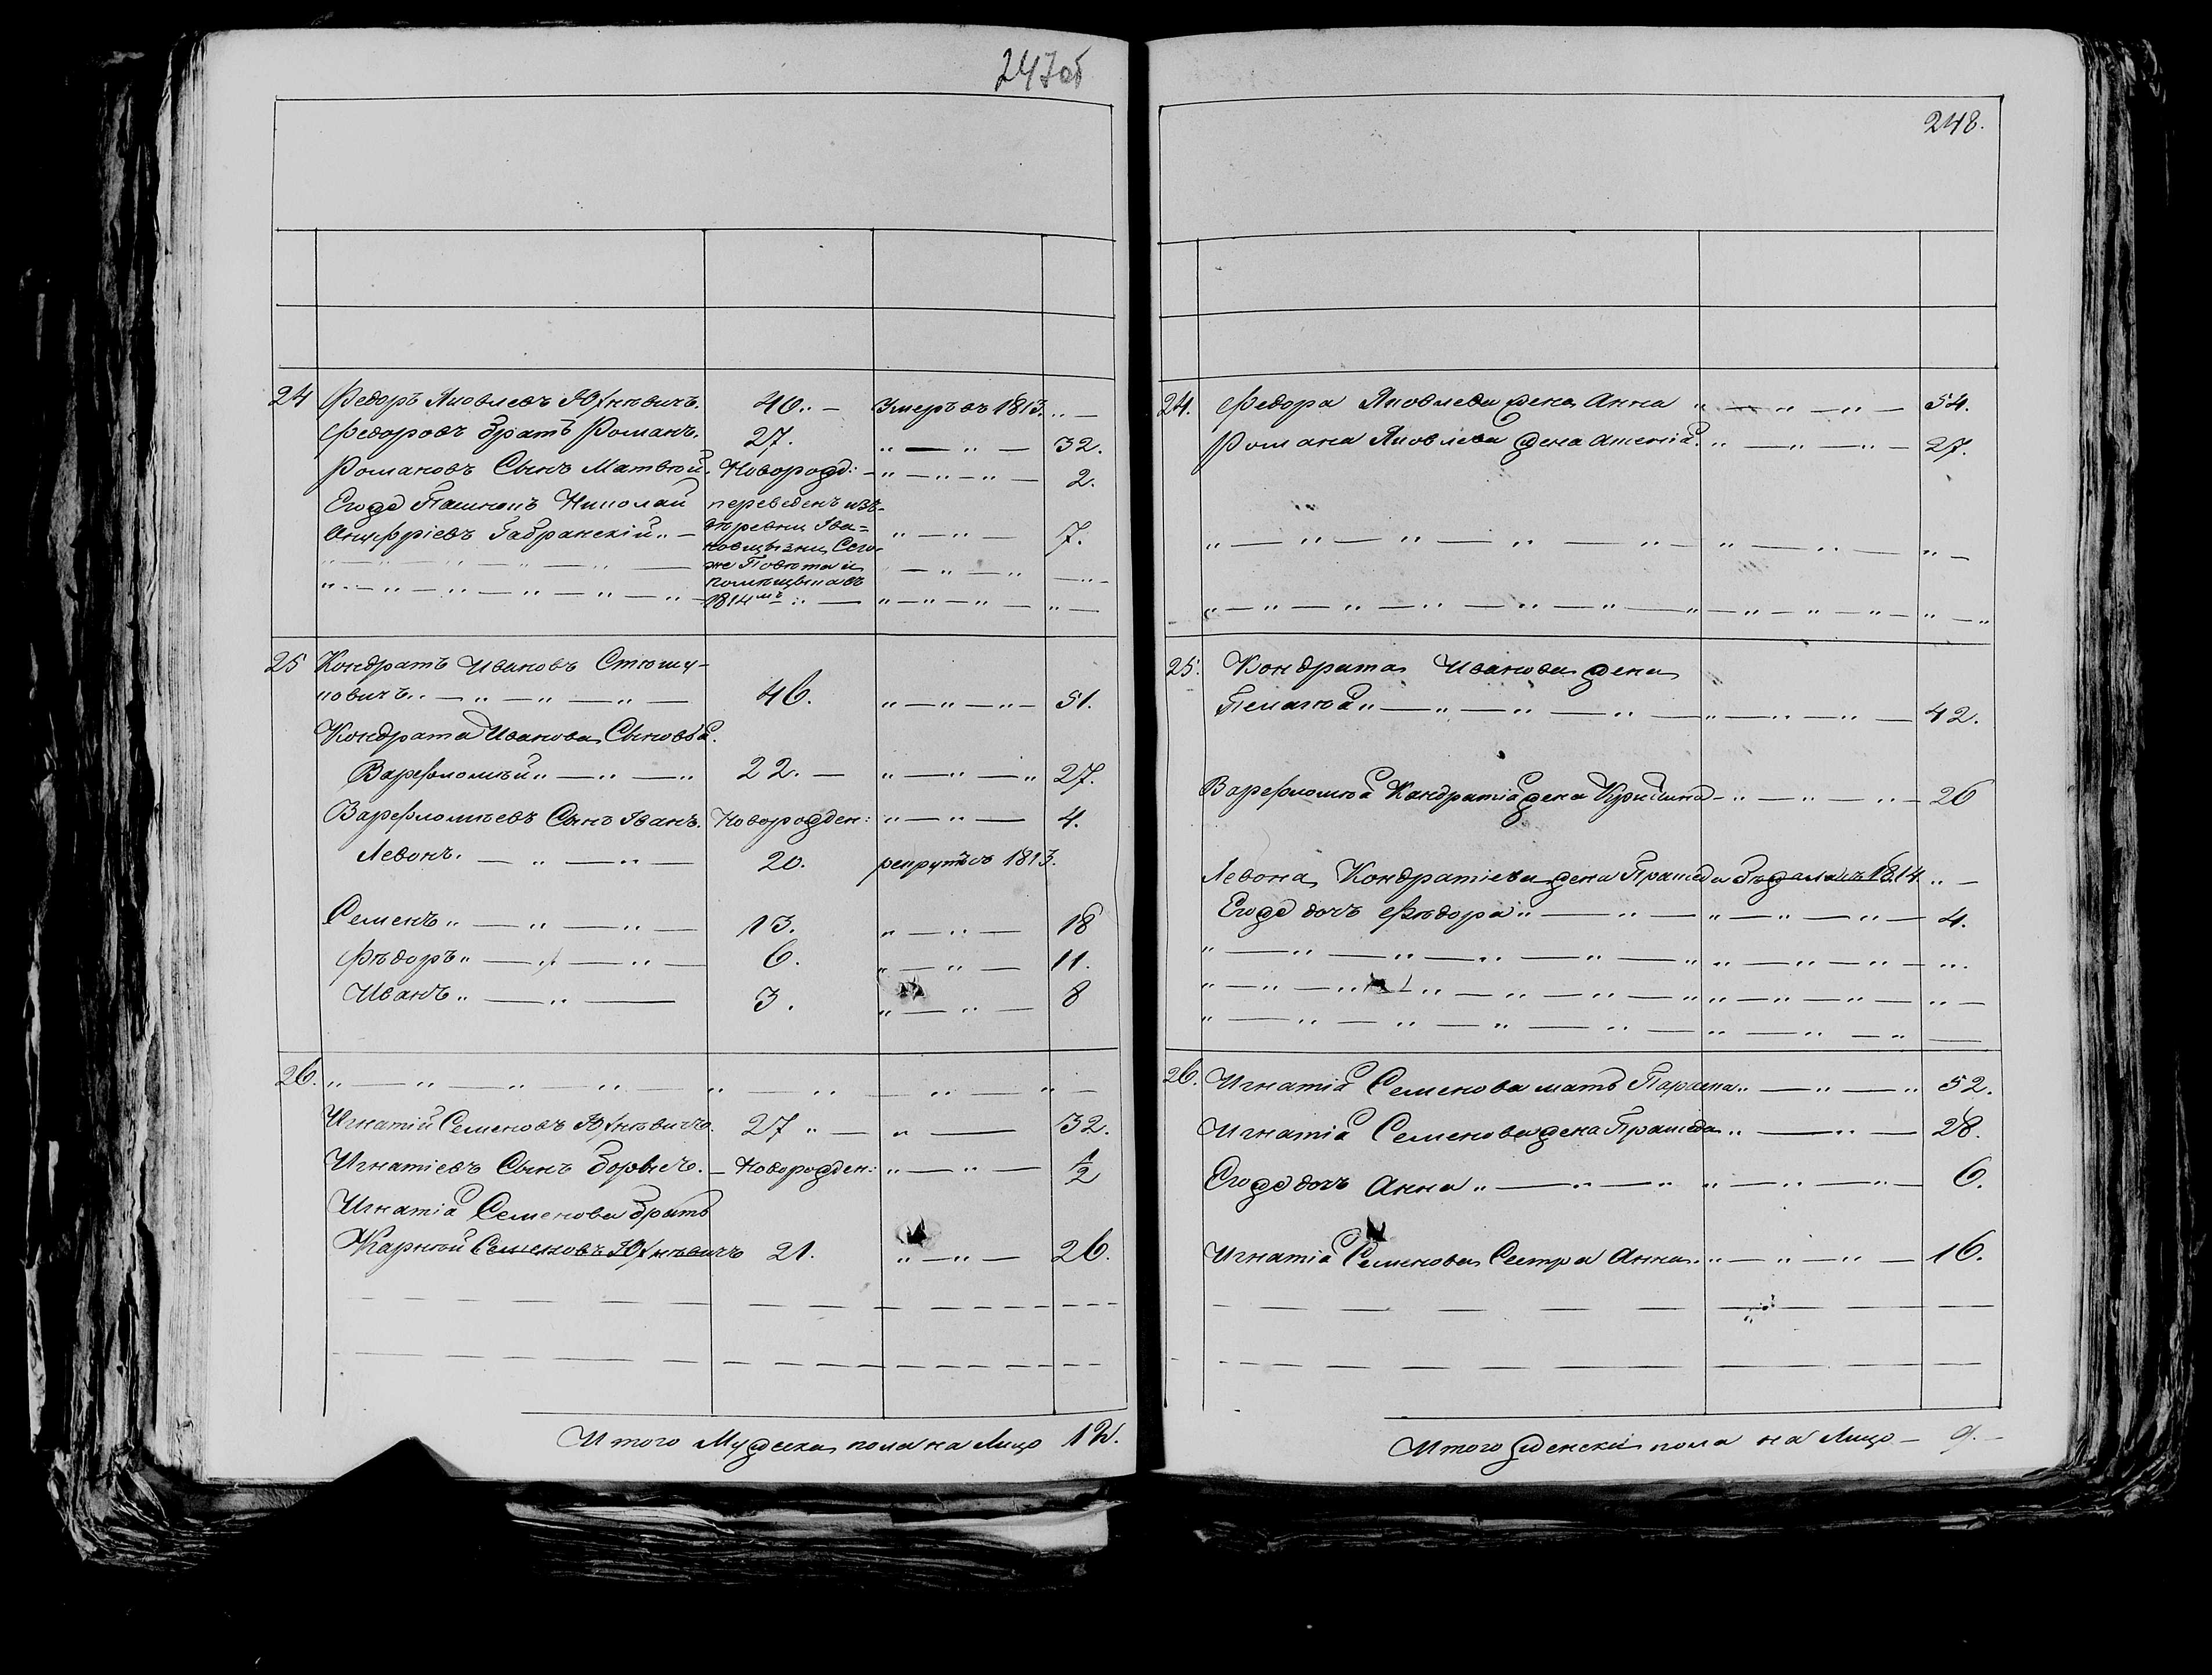 247об
24 Федоръ Яковлевъ Юхневичъ. 40. — Умеръ въ 1813. „ —
Федоровъ братъ Романъ. 27. „ — „ — 32.
Романовъ Сынъ Матвей. Новорожд: — „ — „ — „ — 2.
Егожъ Николай переведенъ изъ
деревни Ива=
„ — „ — 7.
новщызны Сего
же Повета и
„ — „ — „ — „
1814мъ „ — „ — „ — „ — „ —
25 Кондратъ Ивановъ Стюшу-
новичъ. „ — „ — „ — „ — 46. „ — „ — „ — 51.
Кондрата Иванова Сыновья.
Варфломей „ — „ — „ 22. — „ — „ — „ 27.
Варфломеевъ Сынъ Иванъ. Новорожден: „ — „ — 4.
Левонъ. — „ — „ — 20. рекрутъ въ 1813.
Семенъ „ — „ — „ — 13. „ — „ — 18
Фѣдоръ „ — „ — „ — 6. „ — „ — 11.
Иванъ „ — „ — 3. „ — „ — 8
26. „ — „ — „ — „ — „ — „ — „ — „ —
Игнатій Семеновъ Юхневичъ. 27 „ — „ — 32.
Игнатіевъ Сынъ Борысъ. — Новорожден: „ — „ — 1/2
Игнатія Семенова братъ
Карней Семеновъ Юхневичъ 21. „ — „ — 26.
Итого Мужеска пола на Лицо 12.
248.
24. Федора Яковлева жена Анна „ — „ — „ — 54.
Романа Яковлева жена „ — „ — „ — 27.
„ — „ — „ — „ — „ — „ — „ — „ —
„ — „ — „ — „ — „ — „ — „ — „ — „ — „ — „
25. Кондрата Иванова жена
Пелагея „ — „ — „ — „ — „ — „ — „ — 42.
Варфломея Кондратія жена Крыстина — „ — „ — „ — 26
Левона Кондратіева жена Праседа въ 1814 „ —
Егожъ дочъ Фѣдора „ — „ — „ — „ — „ — 4.
„ — „ — „ — „ — „ — „ „ — „ — „ — „.
„ — „ — „ — „ — „ — „ — „ — „ — „ — „ — „ —
„ — „ — „ — „ — „ — „ — „ — „ — „ —
26. Игнатія Семенова мать Параска „ — „ — „ 52.
Игнатія Семенова жена Праседа „ — „ — 28.
Егожъ дочъ Анна „ — „ — „ „ — „ — „ — 6.
Игнатія Семенова Сестра Анна. „ — „ — „ — 16.
Итого женска пола на Лицо — 9. —